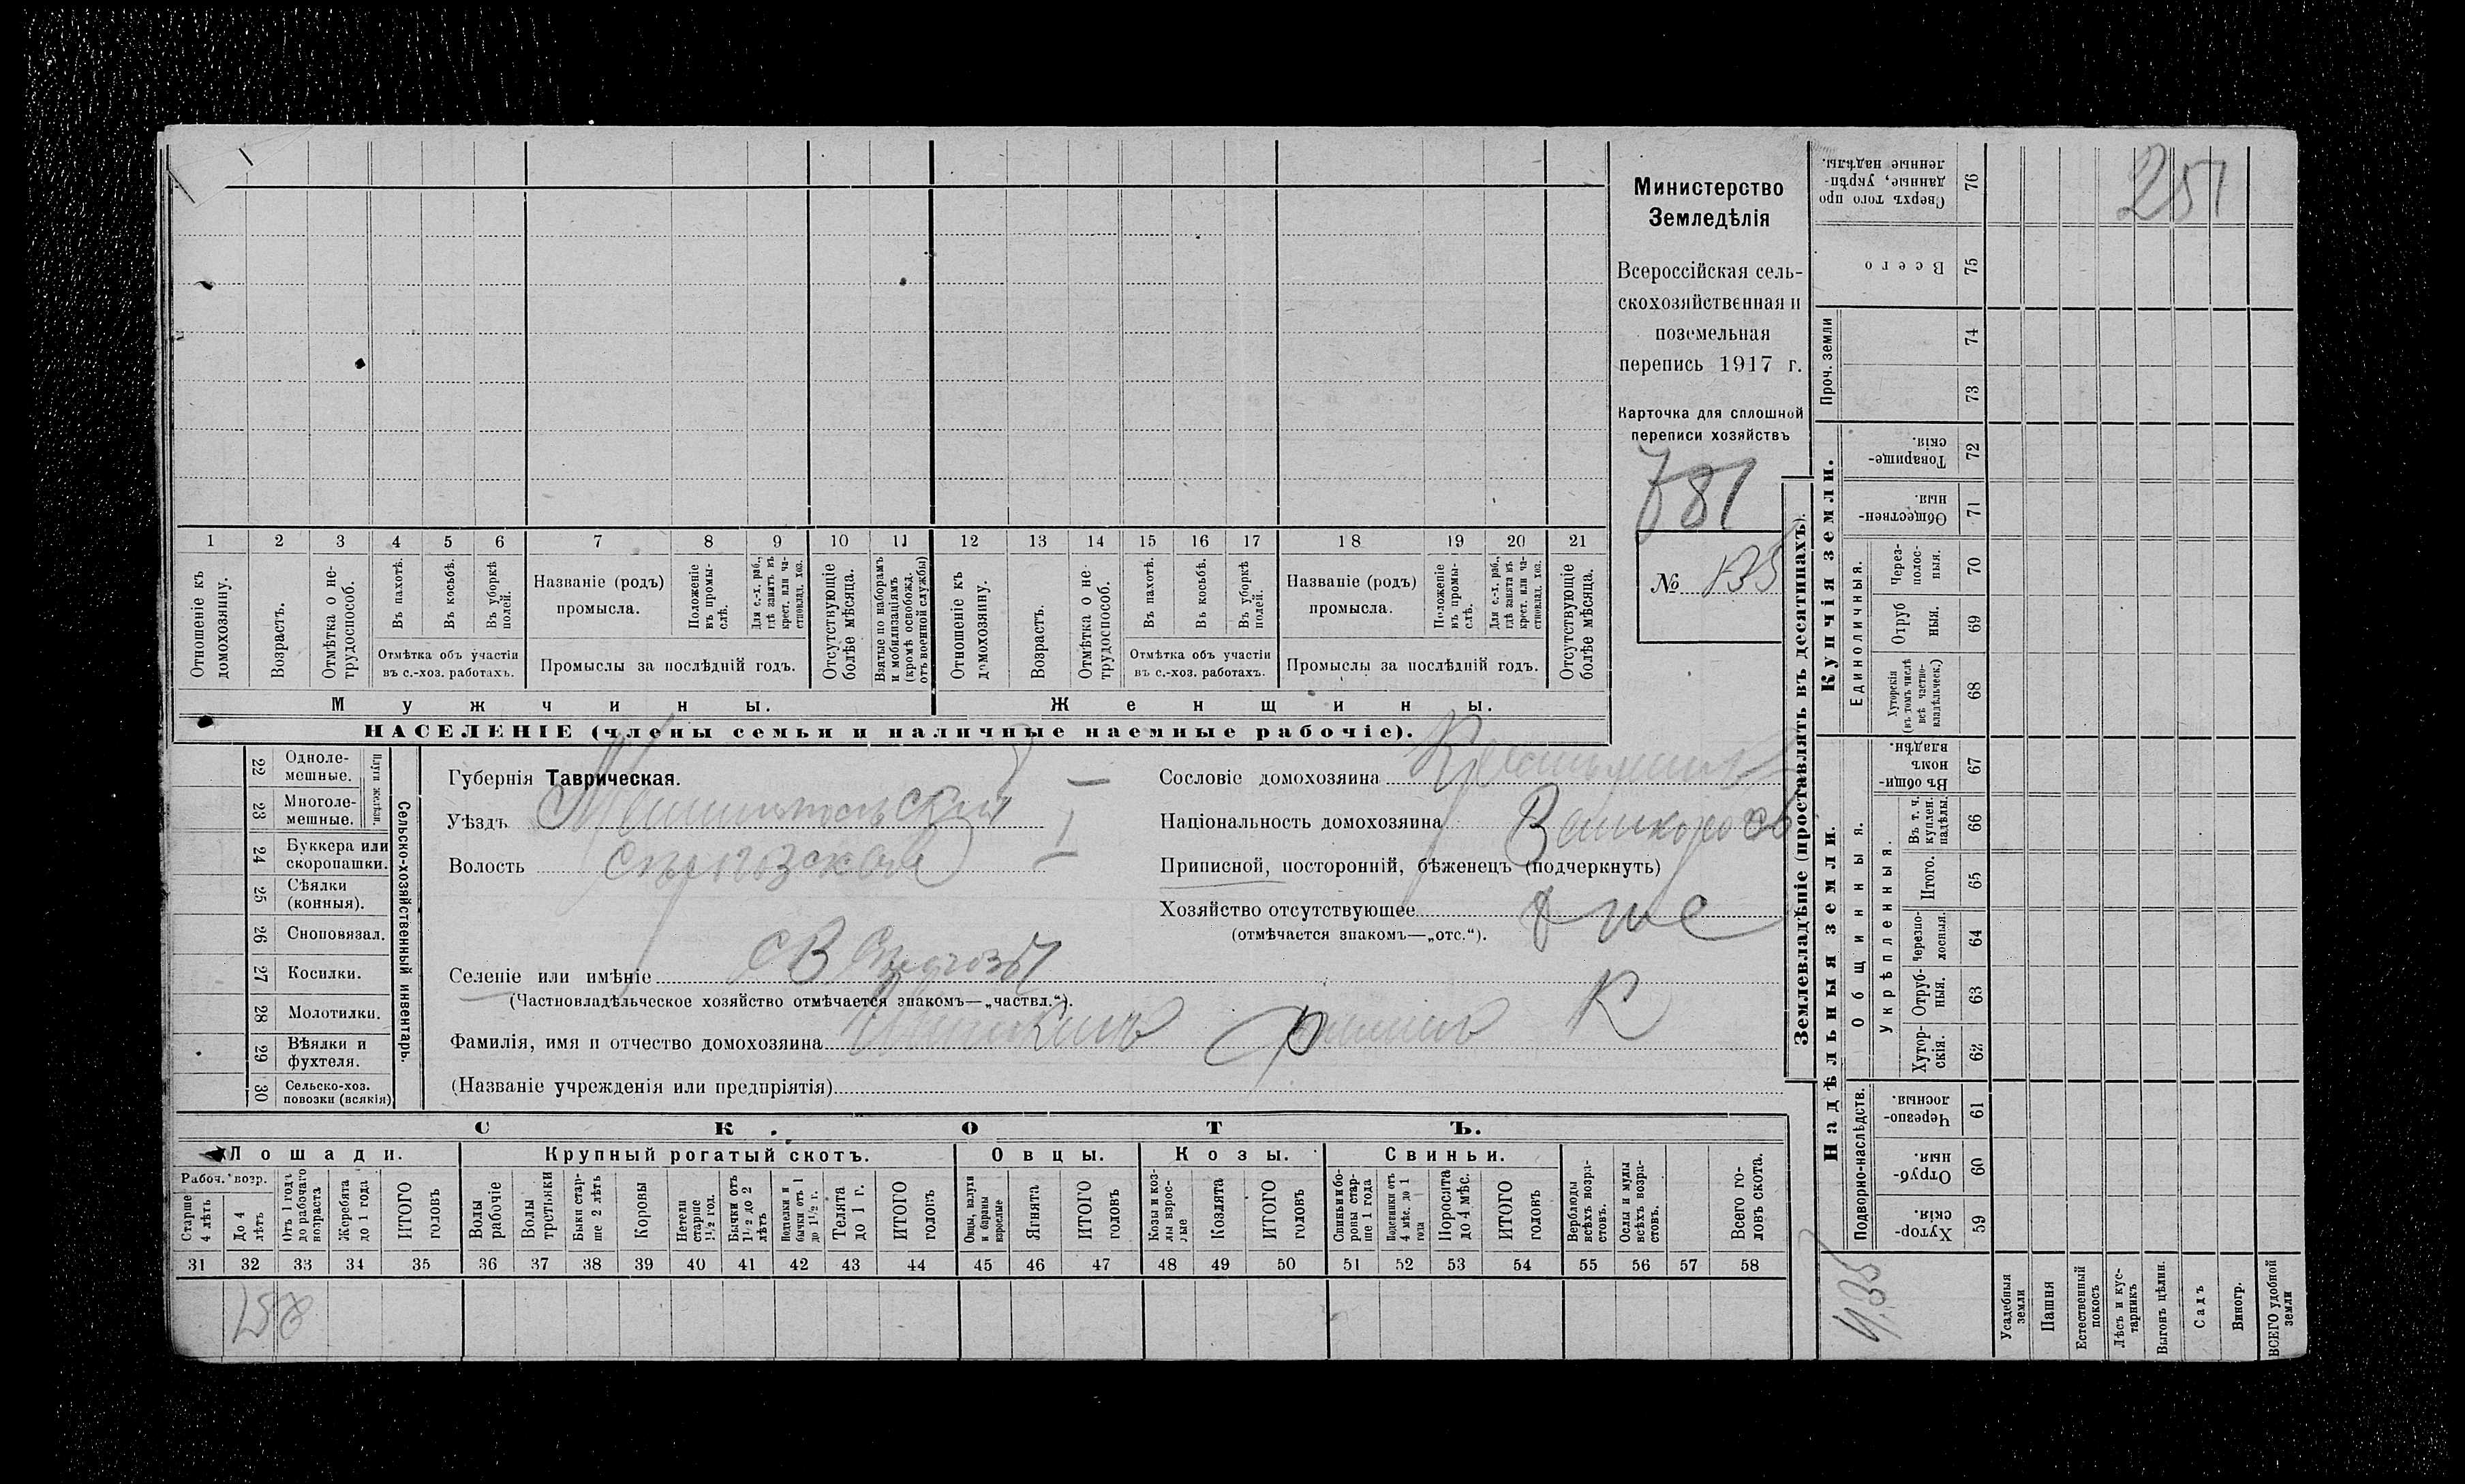 251
1 2 3 4 5 6 7 8 9 10 11 12 13 14 15 16 17 18 19 20 21
Отношеніе къ домохозяину.
Возрастъ.
Отмѣтка о не-
трудоспособ.
Въ пахотѣ.
Въ косьбѣ.
Въ уборкѣ
полей.
Отмѣтка объ участіи
въ с.-хоз. работахъ.
Названіе (родъ)
промысла.
Положеніе
въ промы-
слѣ.
Для с.-х. раб.,
гдѣ занятъ въ
крест. или ча-
стновлад. хоз.
Промыслы за послѣдній годъ.
Отсутствующіе
болѣе мѣсяца.
Взятые по наборамъ
и мобилизаціямъ
(кромѣ освобожд.
отъ военной службы)
Отношеніе къ
домохозяину.
Возрастъ.
Отмѣтка о не-
трудоспособ.
Въ пахотѣ.
Въ косьбѣ.
Въ уборкѣ
полей.
Отмѣтка объ участіи
въ с.-хоз. работахъ.
Названіе (родъ)
промысла.
Положеніе
въ промы-
слѣ.
Для с.-х. раб.,
гдѣ занята въ
крест. или ча-
стновлад. хоз.
Промыслы за послѣдній годъ.
Отсутствующіе
болѣе мѣсяца.
Мужчины. Женщины.
НАСЕЛЕНІЕ (члены семьи и наличные наемные рабочіе).
Министерство
Земледѣлія
Всероссійская сель-
скохозяйственная и
поземельная
перепись 1917 г.
Карточка для сплошной
переписи хозяйствъ
781
№ 135
22 Одноле-
мешные.
23 Многоле-
мешные.
Плуги желѣзн.
24 Буккера или
скоропашки.
25 Сѣялки
(конныя).
26 Сноповязал.
27 Косилки.
28 Молотилки.
29 Вѣялки и
фухтеля.
30 Сельско-хоз.
повозки (всякія)
Сельско-хозяйственный инвентарь.
Губернія Таврическая.
Уѣздъ Мелитопольскій
Волость
Селеніе или имѣніе
(Частновладѣльческое хозяйство отмѣчается знакомъ—„частвл.“).
Фамилія, имя и отчество домохозяина
(Названіе учрежденія или предпріятія)
Сословіе домохозяина
Національность домохозяина
Приписной, посторонній, бѣженецъ (подчеркнуть)
Хозяйство отсутствующее
(отмѣчается знакомъ—„отс.“).
СКОТЪ.
Лошади. Крупный рогатый скотъ. Овцы. Козы. Свиньи.
Рабоч. возр.
Старше
4 лѣтъ
До 4
лѣтъ
Отъ 1 года
до рабочаго
возраста
Жеребята
до 1 года
ИТОГО
головъ
Волы
рабочіе
Волы
третьяки
Быки стар-
ше 2 лѣтъ
Коровы
Нетели
старше
1½ год.
Бычки отъ
1½ до 2
лѣтъ
бычки отъ 1
до 1½ г.
Телята
до 1 г.
ИТОГО
головъ
Овцы, валухи
и бараны
взрослые
Ягнята
ИТОГО
головъ
Козы и коз-
лы взрос-
лые
Козлята
ИТОГО
головъ
Свиньи и бо-
ровы стар-
ше 1 года
Подсвинки отъ
4 мѣс. до 1
года
Поросята
до 4 мѣс.
ИТОГО
головъ
Верблюды
всѣхъ возра-
стовъ.
Ослы и мулы
всѣхъ возра-
стовъ.
Всего го-
ловъ скота.
31 32 33 34 35 36 37 38 39 40 41 42 43 44 45 46 47 48 49 50 51 52 53 54 55 56 57 58
Землевладѣніе (проставлять въ десятинахъ).
Купчія земли.
Надѣльныя земли.
Проч. земли
Единоличныя.
Общинныя.
Укрѣпленныя.
Подворно-наслѣдств.
Сверхъ того про-
данные, укрѣп-
ленные надѣлы. 76
Всего 75
74
73
Товарище-
скія. 72
Обществен-
ныя. 71
Через-
полос-
ныя. 70
Отруб
ныя. 69
Хуторскія
(въ томъ числѣ
всѣ частно-
владѣльческ.) 68
Въ общи-
номъ
владѣн. 67
Въ т. ч.
куплен.
надѣлы. 66
Итого. 65
Черезпо-
лосныя. 64
Отруб-
ныя. 63
Хутор-
скія. 62
Черезпо-
лосныя. 61
Отруб-
ныя. 60
Хутор-
скія. 59
Усадебныя
земли
Пашня
Естественный
покосъ
Лѣсъ и кус-
тарникъ
Выгонъ цѣлин.
Садъ
Виногр.
ВСЕГО удобной
земли